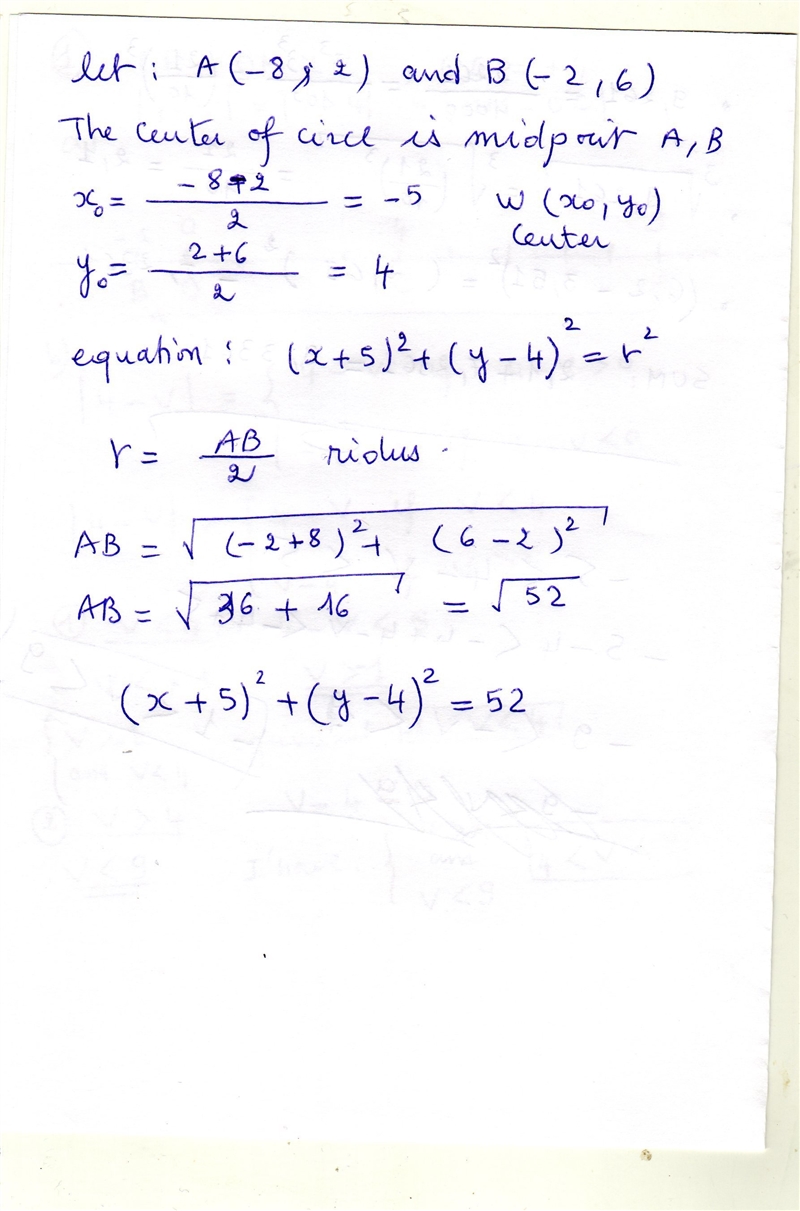 let : A(-8; 2) and B(-2, 6)
The center of circl is midpoint A, B
x₀ = (-8-2)/2 = -5 w (x₀, y₀)
center
y₀ = (2+6)/2 = 4
equation : (x+5)² + (y-4)² = r²
r = AB/2 ridus .
AB = √((-2+8)² + (6-2)²)
AB = √(36 + 16) = √52
(x+5)² + (y-4)² = 52